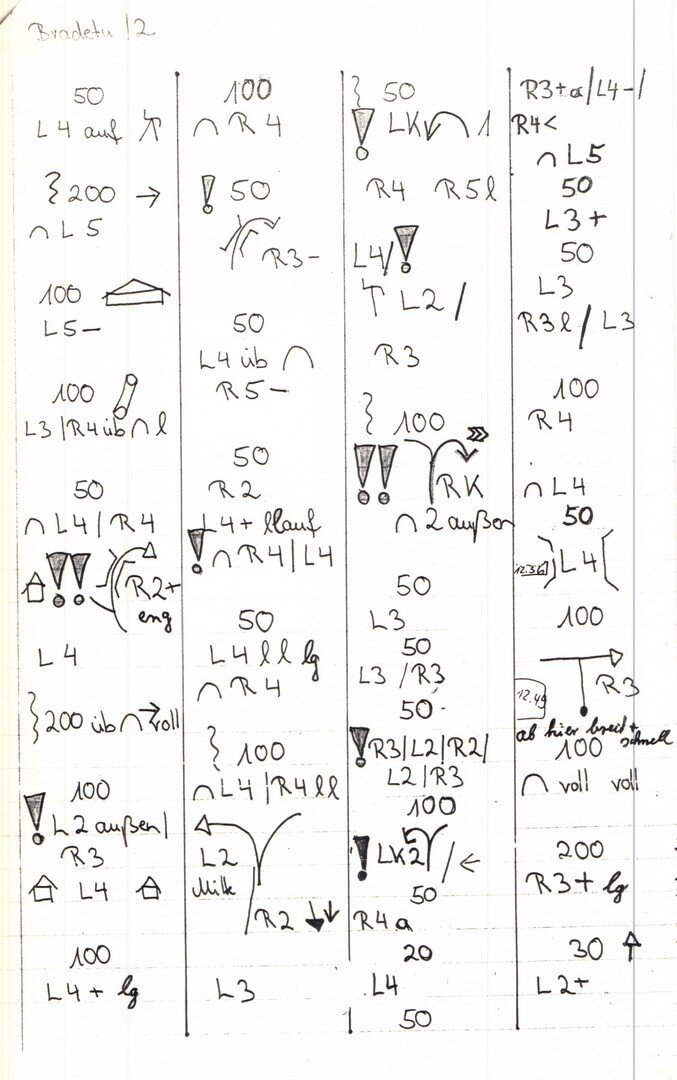 Bradetu / 2
50
L4 auf
200 →
∩ L5
100
L5–
100
L3 / R4 üb ∩ l
50
∩ L4 / R4
!! R2+
eng
L4
200 üb ∩ → voll
100
! L2 außen /
R3
L4
100
L4 + lg
100
∩ R4
! 50
R3–
50
L4 üb ∩
R5–
50
R2
L4+ llauf
! ∩ R4 / L4
50
L4 l l lg
∩ R4
100
∩ L4 / R4 ll
L2
R2
L3
50
! LK 1
R4 R5l
L4 / !
L2 /
R3
100
!! RK
∩ 2 außen
50
L3
50
L3 / R3
50
! R3 / L2 / R2 /
L2 / R3
100
! LK2 / ←
50
R4 a
20
L4
50
R3+a / L4– /
R4<
∩ L5
50
L3+
50
L3
R3l / L3
100
R4
∩ L4
50
12.36 L4
100
12.49 R3
ab hier breit + schnell
100
∩ voll voll
200
R3+ lg
30
L2+